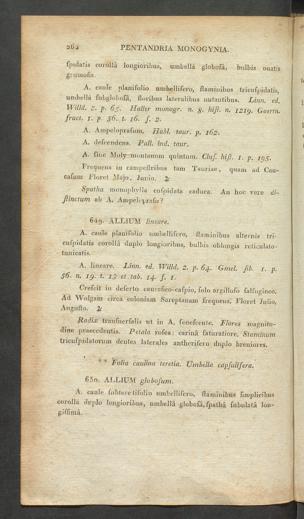 262 PENTANDRIA MONOGYNIA.
spidatis corollâ longioribus, umbellâ globosâ, bulbis ouatis
grumosis.
A. caule planifolio umbellifero, staminibus tricuspidatis,
umbella subglobosâ, floribus lateralibus nutantibus. Linn. ed.
Willd. 2. p. 65. Haller monogr. n. 8. hist. n. 1219. Gaertn.
fruct. 1. p. 56. t. 16. f. 2.
A. Ampeloprasum. Habl. taur. p. 162.
A. descendens. Pall. ind. taur.
A. siue Moly montanum quintum. Clus. hist. 1. p. 195.
Frequens in campestribus tam Tauriae, quam ad Cau-
casum Floret Majo, Junio. ♃
Spatha monophylla cuspidata caduca. An hoc vere di-
stinctum ab A. Ampelopraso?
649. ALLIUM lineare.
A. caule planifolio umbellifero, staminibus alternis tri-
cuspidatis corollâ duplo longioribus, bulbis oblongis reticulato-
tunicatis.
A. lineare. Linn. ed. Willd. 2. p. 64. Gmel. sib. 1. p.
56. n. 19. t. 13 et tab. 14. f. 1.
Crescit in deserto caucasico-caspio, solo argilloso salsugineo.
Ad Wolgam circa coloniam Sareptanam frequens. Floret Julio,
Augusto. ♃
Radix transuersalis ut in A. senescente. Flores magnitu-
dine praecedentis. Petala rosea: carinâ saturatiore. Staminum
tricuspidatorum dentes laterales antherifero duplo breuiores.
** Folia caulina teretia. Umbella capsulifera.
650. ALLIUM globosum.
A. caule subteretifolio umbellifero, staminibus simplicibus
corollâ duplo longioribus, umbellâ globosâ, spathâ subulatâ lon-
gissimâ.